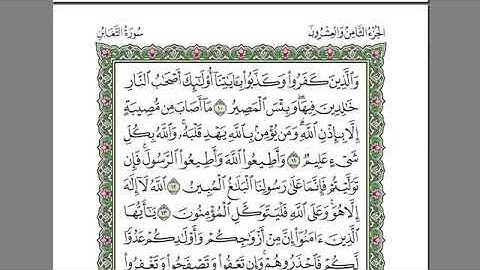 الجزء الثامن والعشرون
سورة التغابن
وَالَّذِينَ كَفَرُوا وَكَذَّبُوا بِآيَاتِنَا أُولَٰئِكَ أَصْحَابُ النَّارِ
خَالِدِينَ فِيهَا ۖ وَبِئْسَ الْمَصِيرُ ١٠ مَا أَصَابَ مِن مُّصِيبَةٍ
إِلَّا بِإِذْنِ اللَّهِ ۗ وَمَن يُؤْمِن بِاللَّهِ يَهْدِ قَلْبَهُ ۚ وَاللَّهُ بِكُلِّ
شَيْءٍ عَلِيمٌ ١١ وَأَطِيعُوا اللَّهَ وَأَطِيعُوا الرَّسُولَ ۚ فَإِن
تَوَلَّيْتُمْ فَإِنَّمَا عَلَىٰ رَسُولِنَا الْبَلَاغُ الْمُبِينُ ١٢ اللَّهُ لَا إِلَٰهَ
إِلَّا هُوَ ۚ وَعَلَى اللَّهِ فَلْيَتَوَكَّلِ الْمُؤْمِنُونَ ١٣ يَا أَيُّهَا
الَّذِينَ آمَنُوا إِنَّ مِنْ أَزْوَاجِكُمْ وَأَوْلَادِكُمْ عَدُوًّا
لَّكُمْ فَاحْذَرُوهُمْ ۚ وَإِن تَعْفُوا وَتَصْفَحُوا وَتَغْفِرُوا